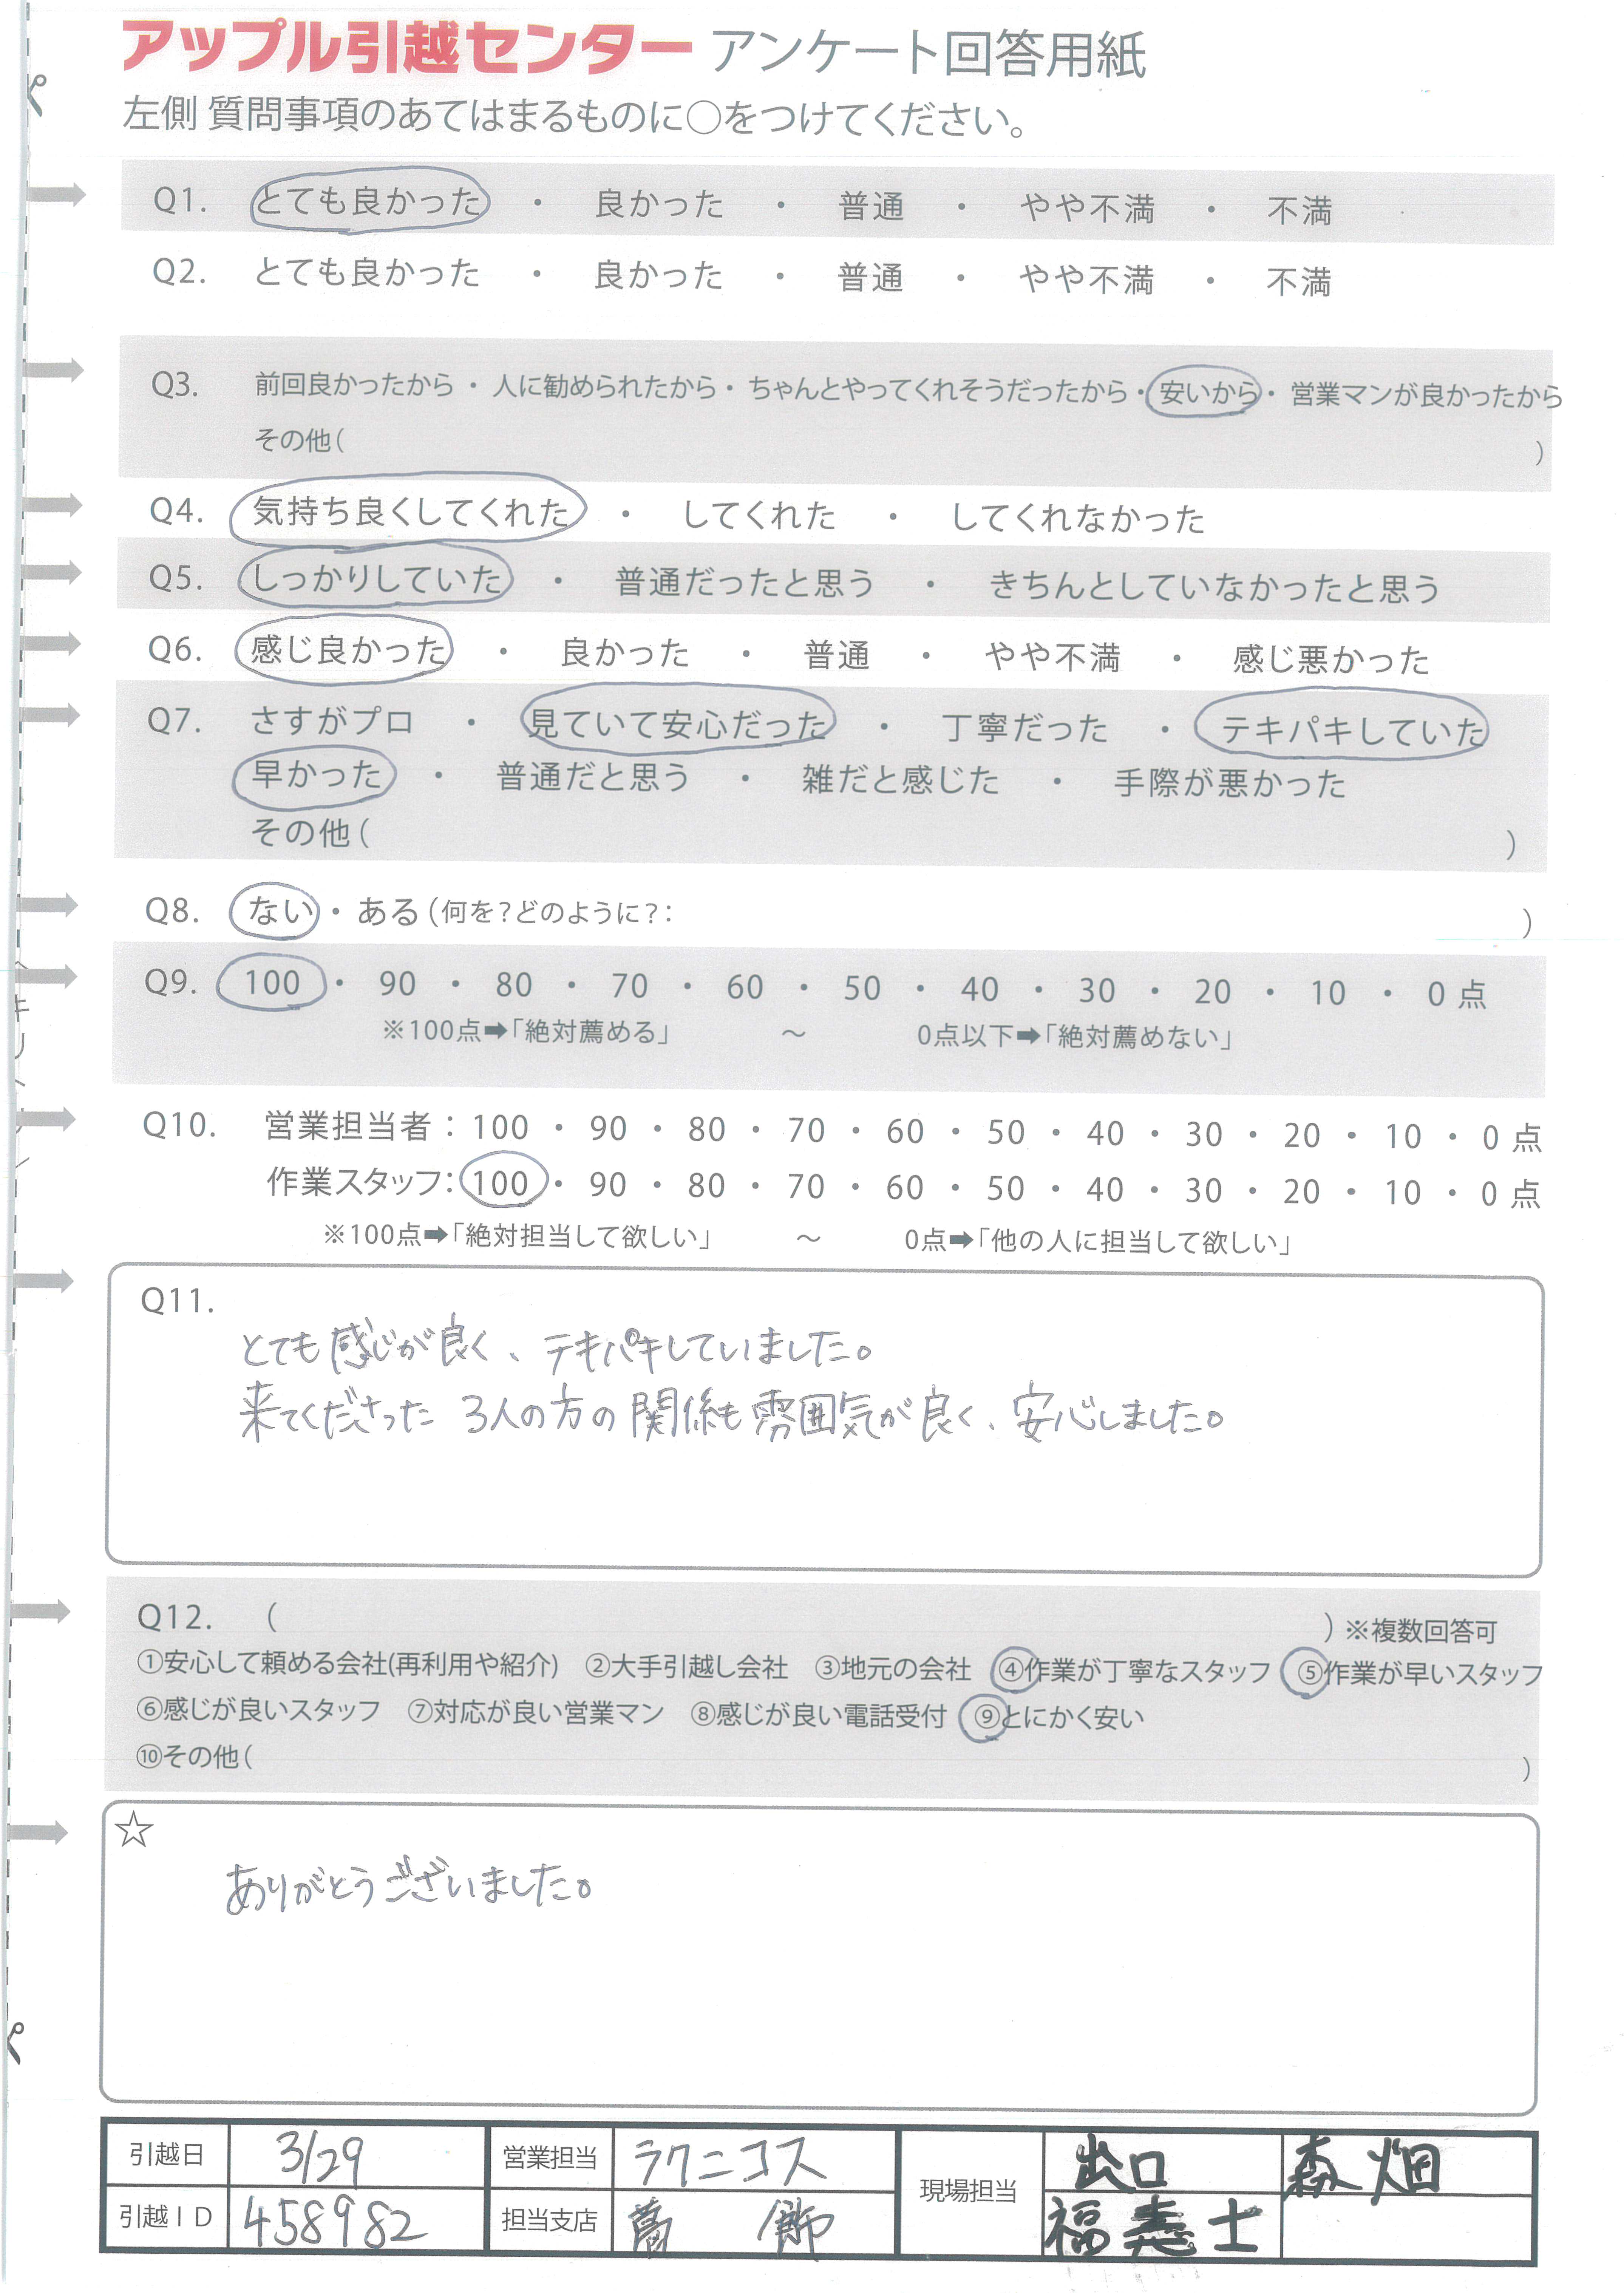 アップル引越センター アンケート回答用紙
左側 質問事項のあてはまるものに○をつけてください。
Q1. とても良かった ・ 良かった ・ 普通 ・ やや不満 ・ 不満
Q2. とても良かった ・ 良かった ・ 普通 ・ やや不満 ・ 不満
Q3. 前回良かったから ・ 人に勧められたから ・ ちゃんとやってくれそうだったから ・ 安いから ・ 営業マンが良かったから
その他( )
Q4. 気持ち良くしてくれた ・ してくれた ・ してくれなかった
Q5. しっかりしていた ・ 普通だったと思う ・ きちんとしていなかったと思う
Q6. 感じ良かった ・ 良かった ・ 普通 ・ やや不満 ・ 感じ悪かった
Q7. さすがプロ ・ 見ていて安心だった ・ 丁寧だった ・ テキパキしていた
早かった ・ 普通だと思う ・ 雑だと感じた ・ 手際が悪かった
その他( )
Q8. ない ・ ある (何を?どのように?: )
Q9. 100 ・ 90 ・ 80 ・ 70 ・ 60 ・ 50 ・ 40 ・ 30 ・ 20 ・ 10 ・ 0 点
※100点➡「絶対薦める」 ～ 0点以下➡「絶対薦めない」
Q10. 営業担当者：100 ・ 90 ・ 80 ・ 70 ・ 60 ・ 50 ・ 40 ・ 30 ・ 20 ・ 10 ・ 0 点
作業スタッフ：100 ・ 90 ・ 80 ・ 70 ・ 60 ・ 50 ・ 40 ・ 30 ・ 20 ・ 10 ・ 0 点
※100点➡「絶対担当して欲しい」 ～ 0点➡「他の人に担当して欲しい」
Q11.
とても感じが良く、テキパキしていました。
来てくださった 3人の方の関係も雰囲気が良く、安心しました。
Q12. ( ) ※複数回答可
①安心して頼める会社(再利用や紹介) ②大手引越し会社 ③地元の会社 ④作業が丁寧なスタッフ ⑤作業が早いスタッフ
⑥感じが良いスタッフ ⑦対応が良い営業マン ⑧感じが良い電話受付 ⑨とにかく安い
⑩その他( )
☆
ありがとうございました。
引越日 3/29 営業担当 ラクニコス 現場担当 出口 森畑
引越ＩＤ 458982 担当支店 葛飾 福 士